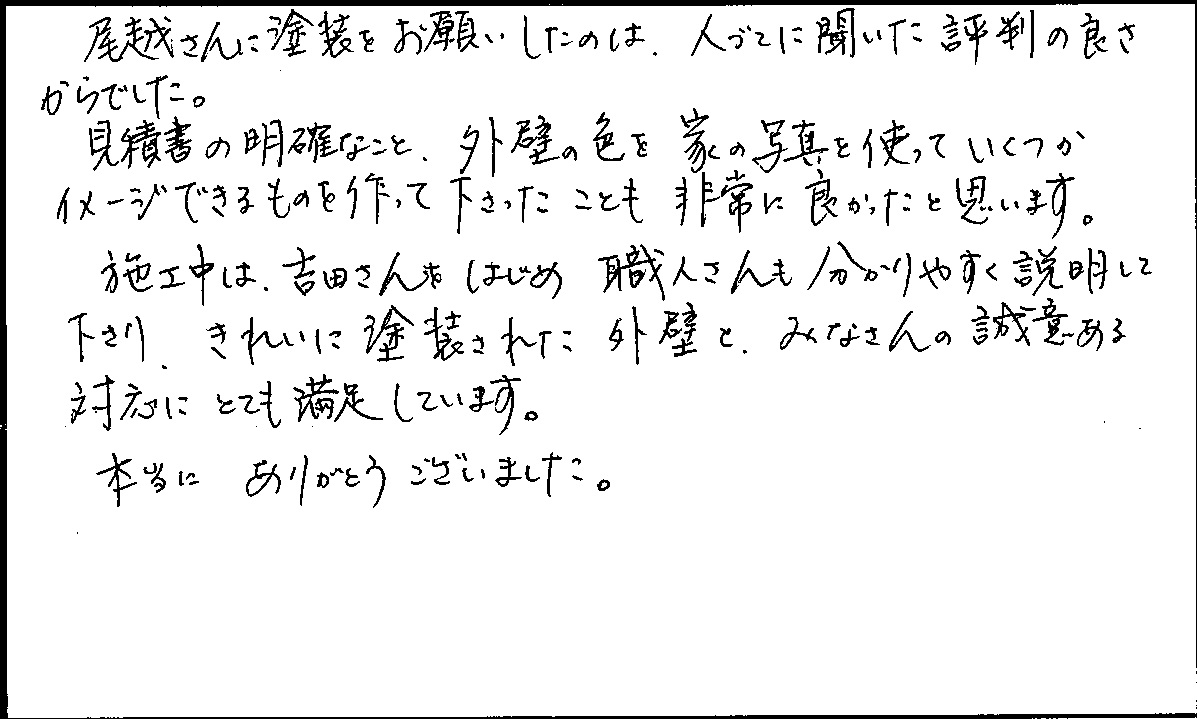 尾越さんに塗装をお願いしたのは、人づてに聞いた評判の良さ
からでした。
見積書の明確なこと、外壁の色を家の写真を使っていくつか
イメージできるものを作って下さったことも非常に良かったと思います。
施工中は、吉田さんをはじめ職人さんも分かりやすく説明して
下さり、きれいに塗装された外壁と、みなさんの誠意ある
対応にとても満足しています。
本当にありがとうございました。